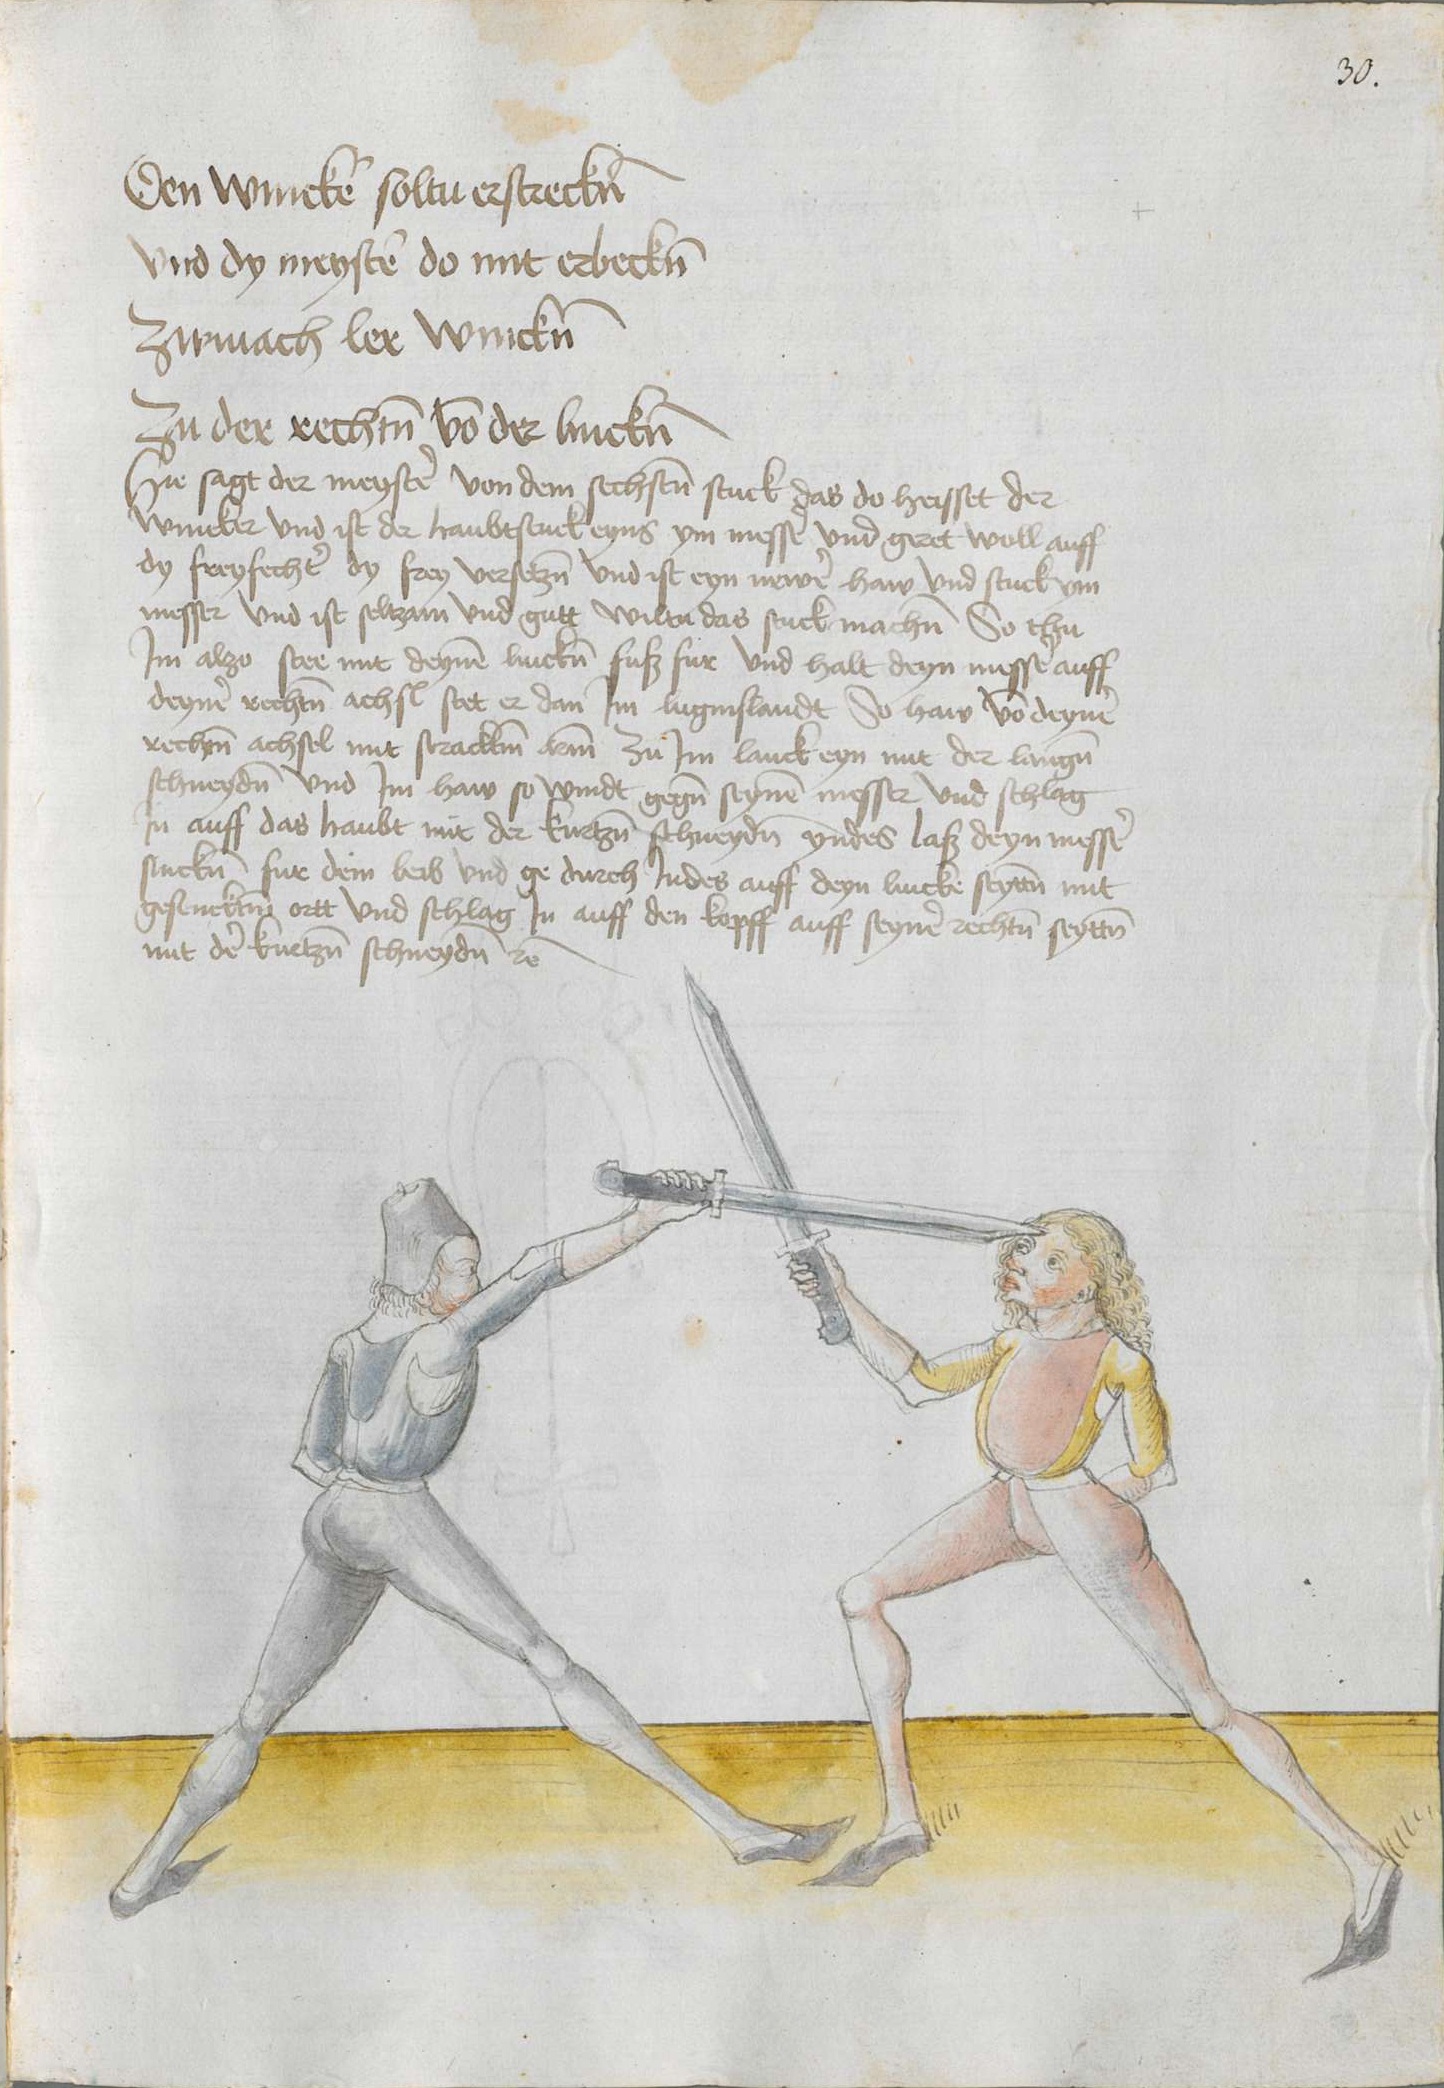 30.
Den Wincker̄ soltu erstreckn̄
Vnd dy meyster̄ do mit erbeckn̄
Zwifach ler Winckn̄
Zu der rechtn̄ vō der linckn̄
Hie sagt der meyster̄ von dem sechstn̄ stuck das do heisset der
Wincker vnd ist der haubtstuck eyns ym messer̄ vnd geret woll auff
dy freyfechter̄ dy frey versetzn̄ vnd ist eyn newer̄ haw vnd stuck ym
messer vnd ist seltzam vnd gutt wiltu das stuck machn̄ So thu
Im alzo stee mit deynē linckn̄ fusz fur vnd halt deyn messer̄ auff
deyner̄ rechtn̄ achsl stet er dan̄ Im luginslandt So haw vō deyner̄
rechtn̄ achsel mit stracktm̄ arm̄ Zu Im lanck eyn mit der langn̄
schneydn̄ vnd Im haw so windt gegn̄ seynē messer vnd schlag
In auff das haubt mit der kurtzn̄ schneydn̄ yndes lasz deyn messer̄
sinckn̄ fur dein leib vnd ge durch Indes auff deyn lincke seyttn̄ mit
gesencktm̄ ortt vnd schlag In auff den kopff auff seyner̄ rechtn̄ seyttn̄
mit der̄ kurtzn̄ schneydn̄ rē